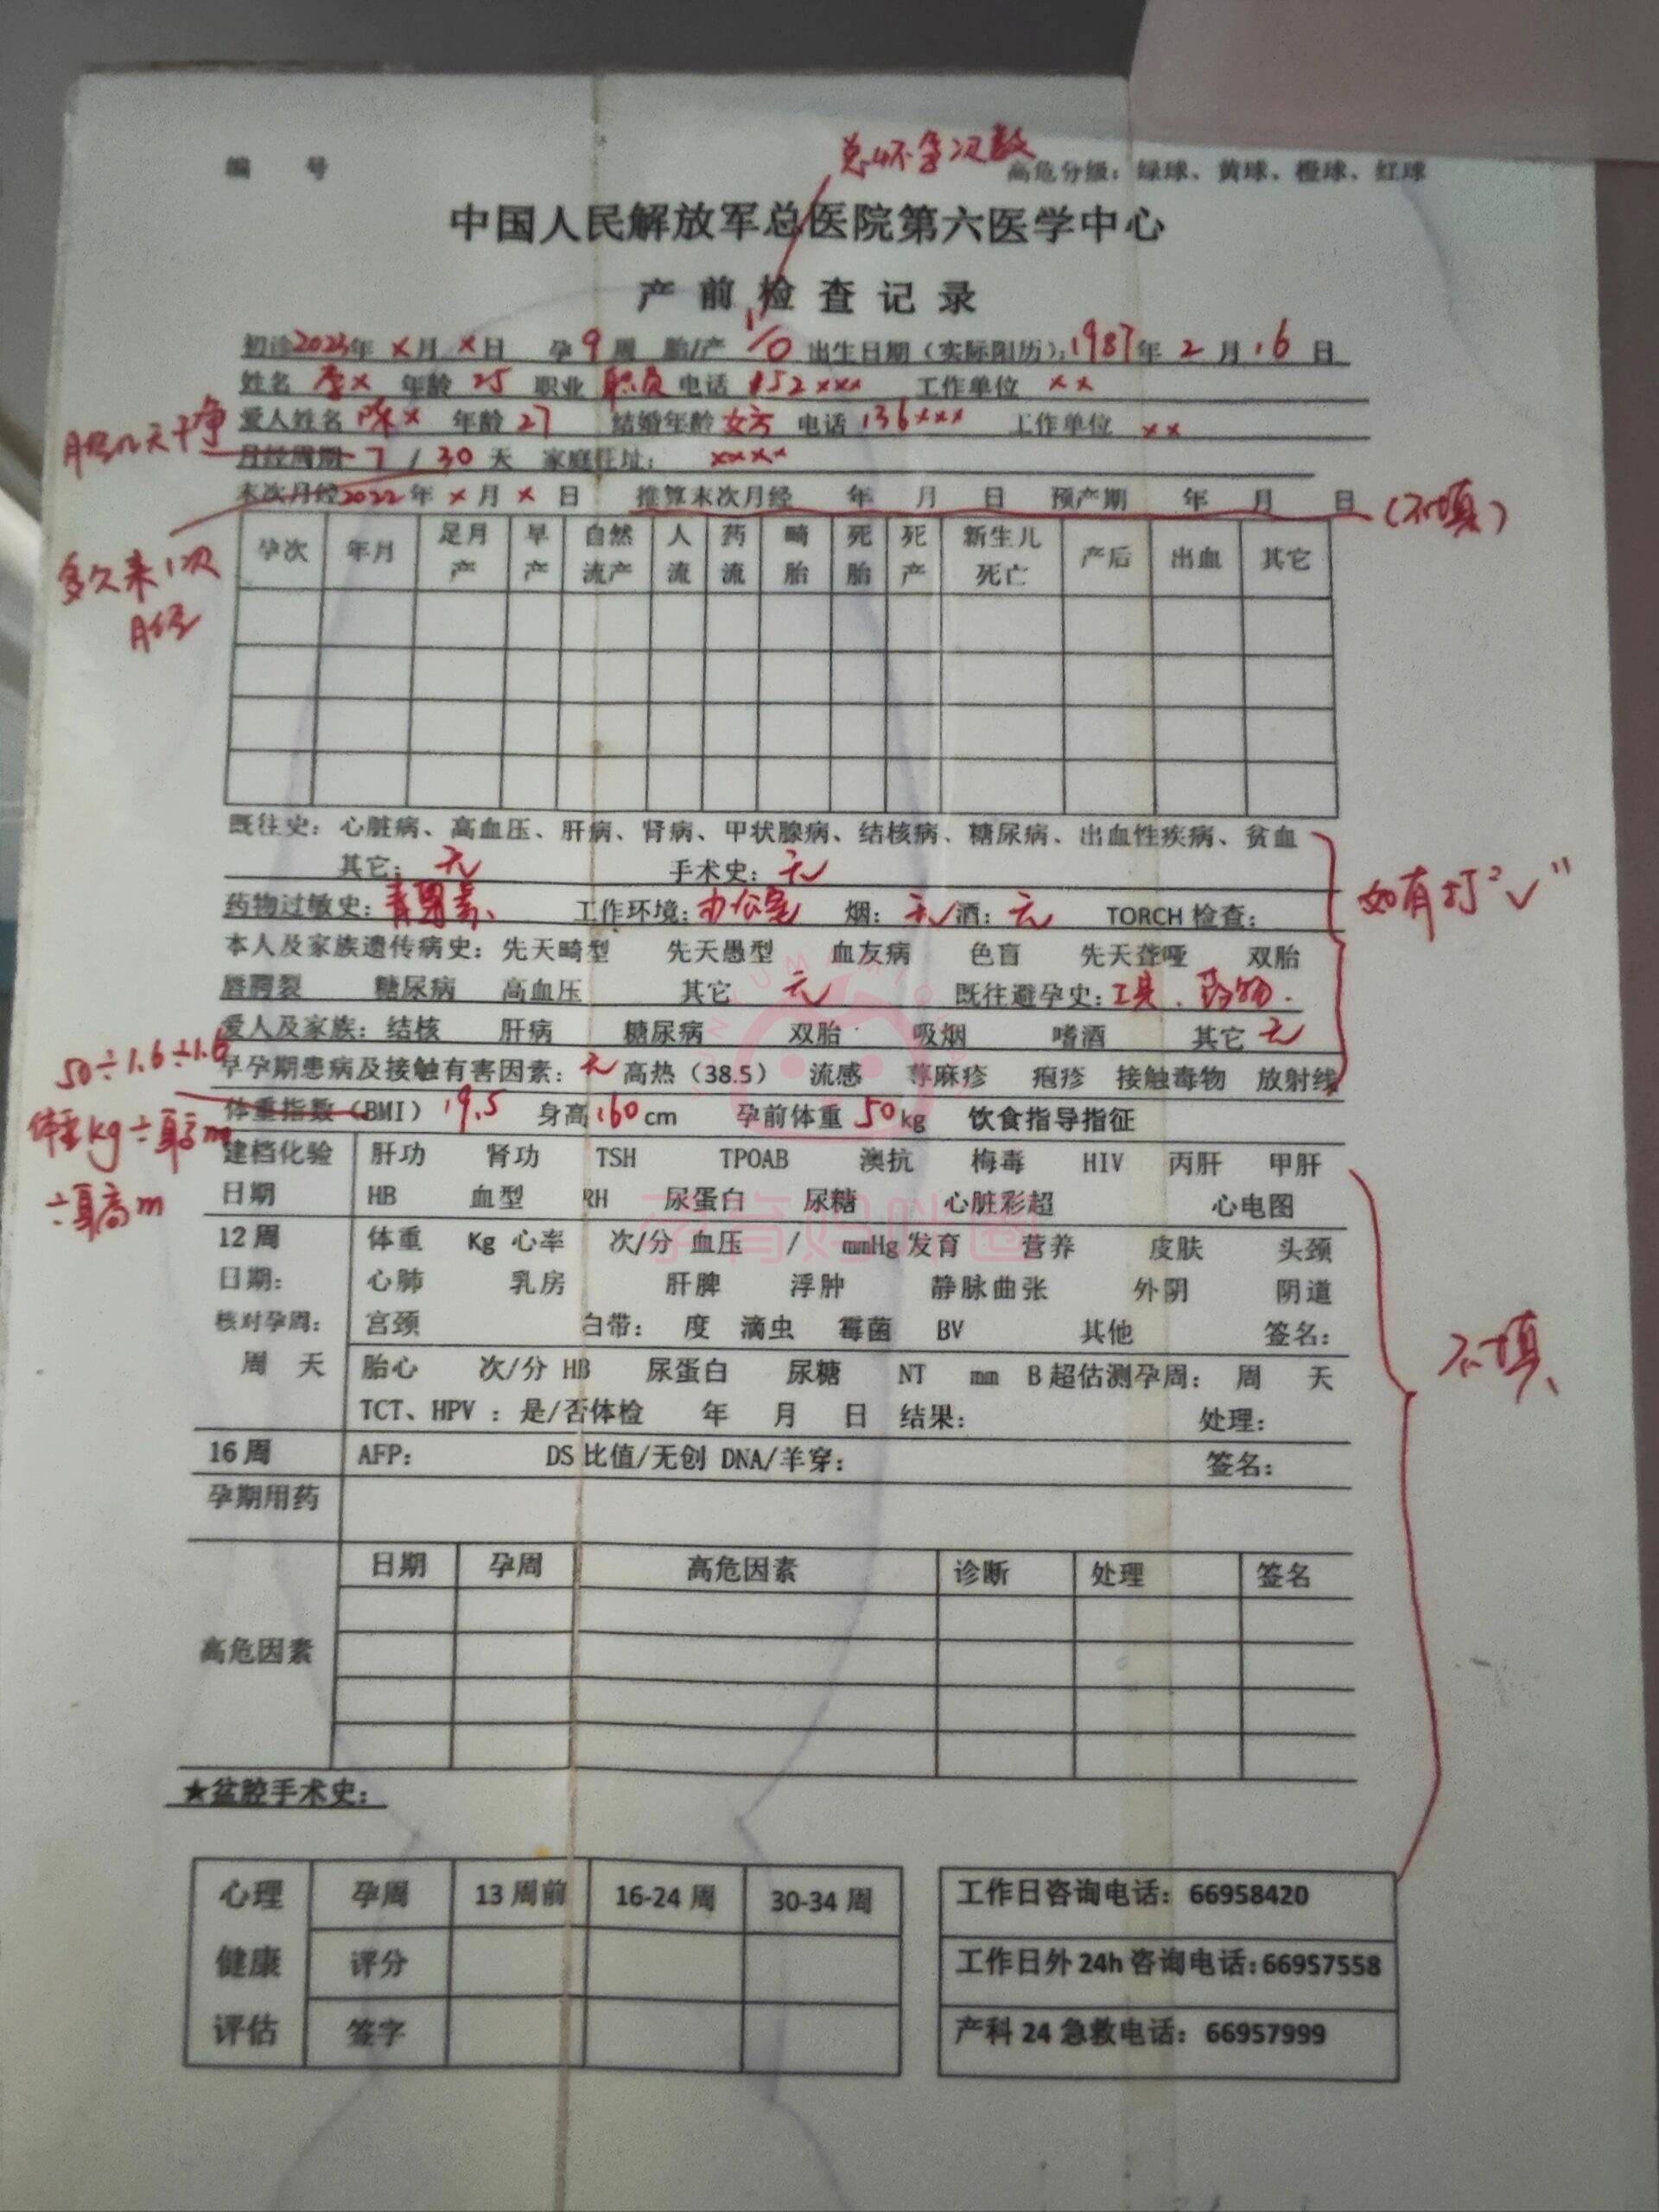 总怀孕次数
编 号 高危分级：绿球、黄球、橙球、红球
中国人民解放军总医院第六医学中心
产前检查记录
初诊2023年 x月 x日 孕9周 胎/产 1/0 出生日期（实际阳历）：1987年 2月 16日
姓名 李x 年龄 25 职业 职员 电话 152xxx 工作单位 xx
爱人姓名 陈x 年龄 27 结婚年龄 女方 电话 136xxx 工作单位 xx
月经几天干净
月经周期 7 / 30 天 家庭住址： xxxx
末次月经2022年 x月 x日 推算末次月经 年 月 日 预产期 年 月 日 （不填）
多久来1次
月经
孕次 年月 足月产 早产 自然流产 人流 药流 畸胎 死胎 死产 新生儿死亡 产后 出血 其它
既往史：心脏病、高血压、肝病、肾病、甲状腺病、结核病、糖尿病、出血性疾病、贫血
其它：无 手术史：无
如有打"√"
药物过敏史：青霉素、 工作环境：办公室 烟：无 酒：无 TORCH 检查：
本人及家族遗传病史：先天畸型 先天愚型 血友病 色盲 先天聋哑 双胎
唇腭裂 糖尿病 高血压 其它 无 既往避孕史：工具．药物．
爱人及家族：结核 肝病 糖尿病 双胎 吸烟 嗜酒 其它 无
50÷1.6÷1.6
早孕期患病及接触有害因素：无 高热（38.5） 流感 荨麻疹 疱疹 接触毒物 放射线
体重指数（BMI） 19.5 身高160cm 孕前体重50kg 饮食指导指征
体重kg÷身高m
÷身高m
建档化验 肝功 肾功 TSH TPOAB 澳抗 梅毒 HIV 丙肝 甲肝
日期 HB 血型 RH 尿蛋白 尿糖 心脏彩超 心电图
孕育妈咪圈
12周 体重 Kg 心率 次/分 血压 / mmHg 发育 营养 皮肤 头颈
日期： 心肺 乳房 肝脾 浮肿 静脉曲张 外阴 阴道
核对孕周： 宫颈 白带： 度 滴虫 霉菌 BV 其他 签名：
不填
周 天 胎心 次/分 HB 尿蛋白 尿糖 NT mm B超估测孕周： 周 天
TCT、HPV ：是/否体检 年 月 日 结果： 处理：
16周 AFP： DS 比值/无创 DNA/羊穿： 签名：
孕期用药
日期 孕周 高危因素 诊断 处理 签名
高危因素
★盆腔手术史：
心理 孕周 13周前 16-24周 30-34周
健康 评分
评估 签字
工作日咨询电话：66958420
工作日外24h咨询电话：66957558
产科24急救电话：66957999